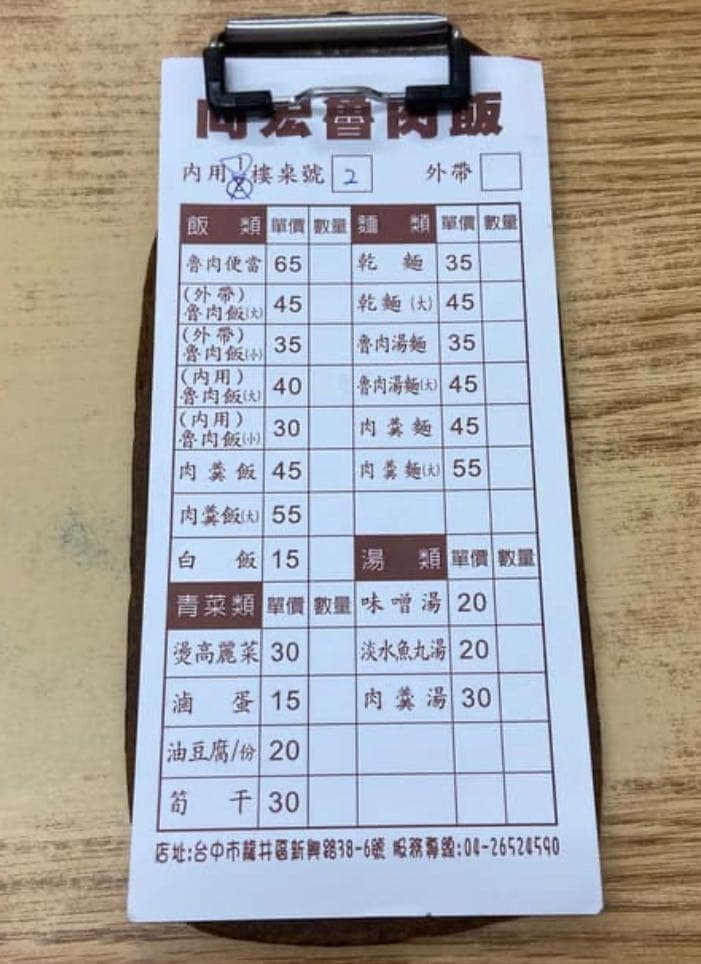 宏魯肉飯
內用1樓桌號 2 外帶
飯類 單價 數量 麵類 單價 數量
魯肉便當 65 乾麵 35
(外帶)魯肉飯(大) 45 乾麵(大) 45
(外帶)魯肉飯(小) 35 魯肉湯麵 35
(內用)魯肉飯(大) 40 魯肉湯麵(大) 45
(內用)魯肉飯(小) 30 肉羹麵 45
肉羹飯 45 肉羹麵(大) 55
肉羹飯(大) 55
白飯 15 湯類 單價 數量
青菜類 單價 數量 味噌湯 20
燙高麗菜 30 淡水魚丸湯 20
滷蛋 15 肉羹湯 30
油豆腐/份 20
筍干 30
店址:台中市龍井區新興路38-6號 服務專線:04-26524590